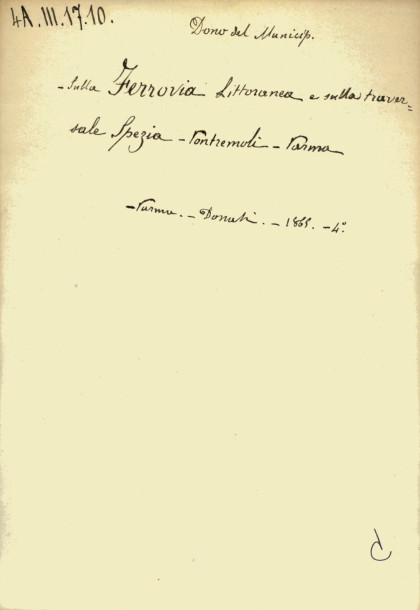 4A.III.17.10.
Dono del Municip.
- Sulla Ferrovia Littoranea e sulla traver=
sale Spezia - Pontremoli - Parma
- Parma. - Donati. - 1865. - 4°.